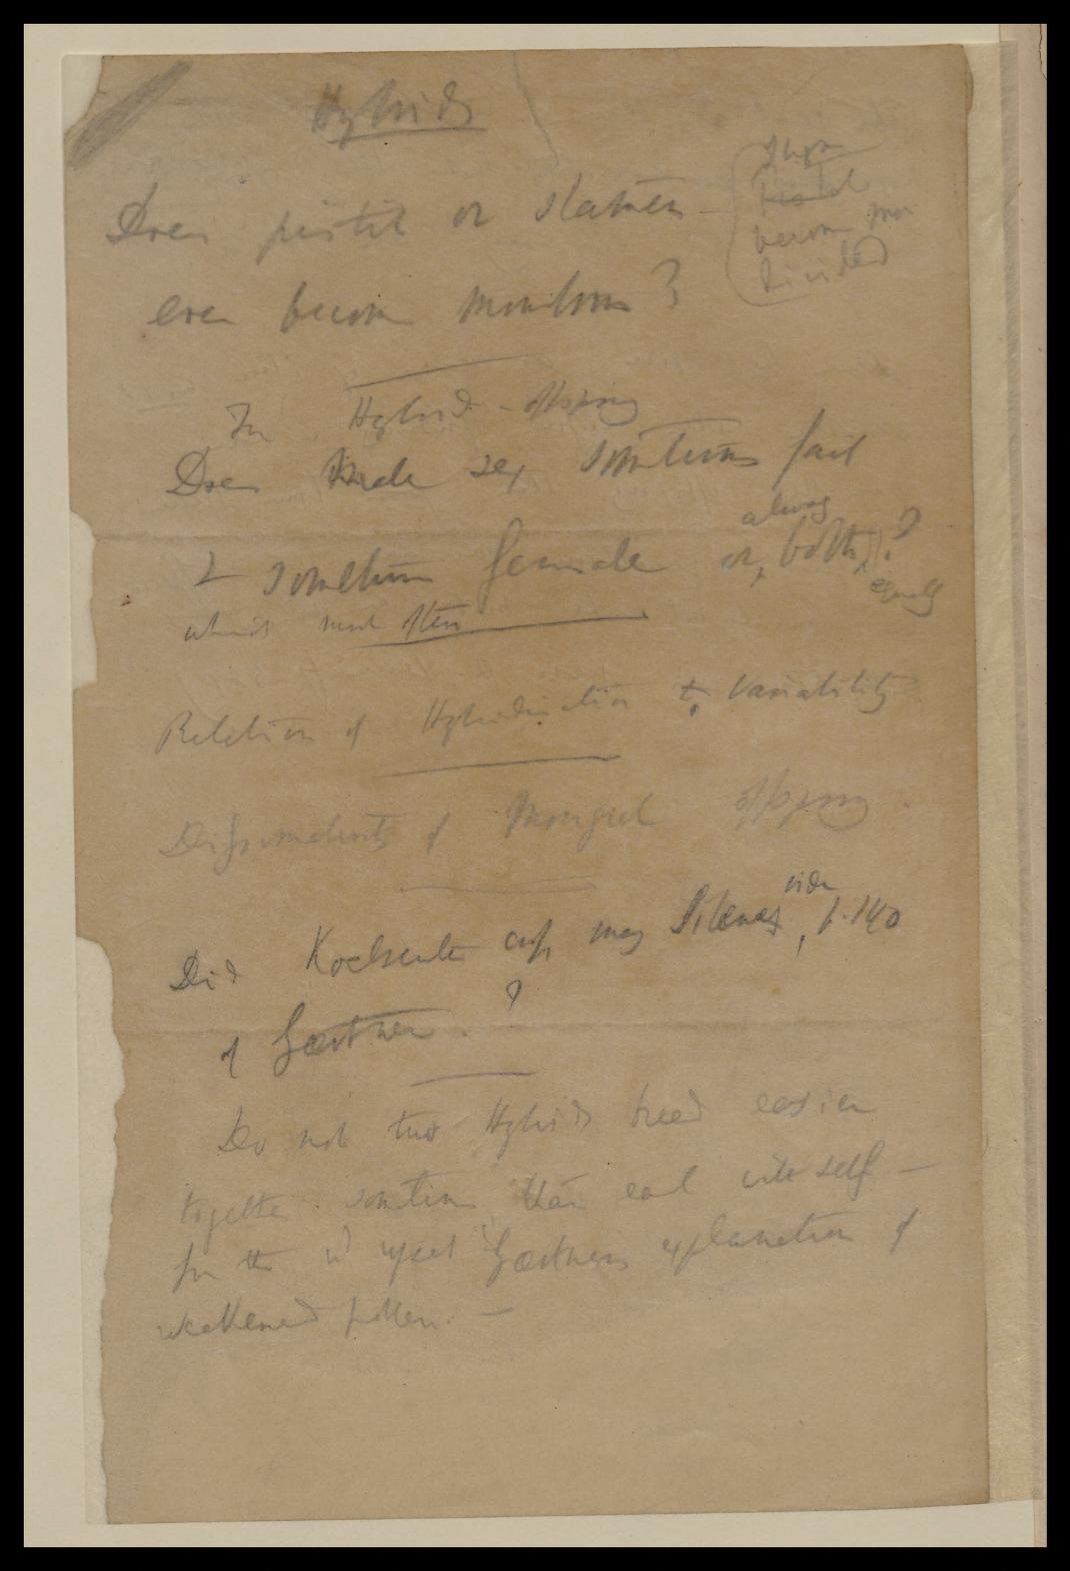 Hybrids
Does pistil or stamen
ever become monstrous?
pistil
become more
divided
In Hybrid-offspring
Does Male sex sometimes fail
& sometimes female or, always both, equally?
which most often
Relation of Hybridisation to variability
Dissimilarity of Mongrel offspring.
Did Koelreuter cross many Silenes, vide p. 140
of Gærtner.?
Do not two Hybrids breed easier
together sometimes than each with self —
for this wd upset Gærtners explanation of
weakened pollen. —